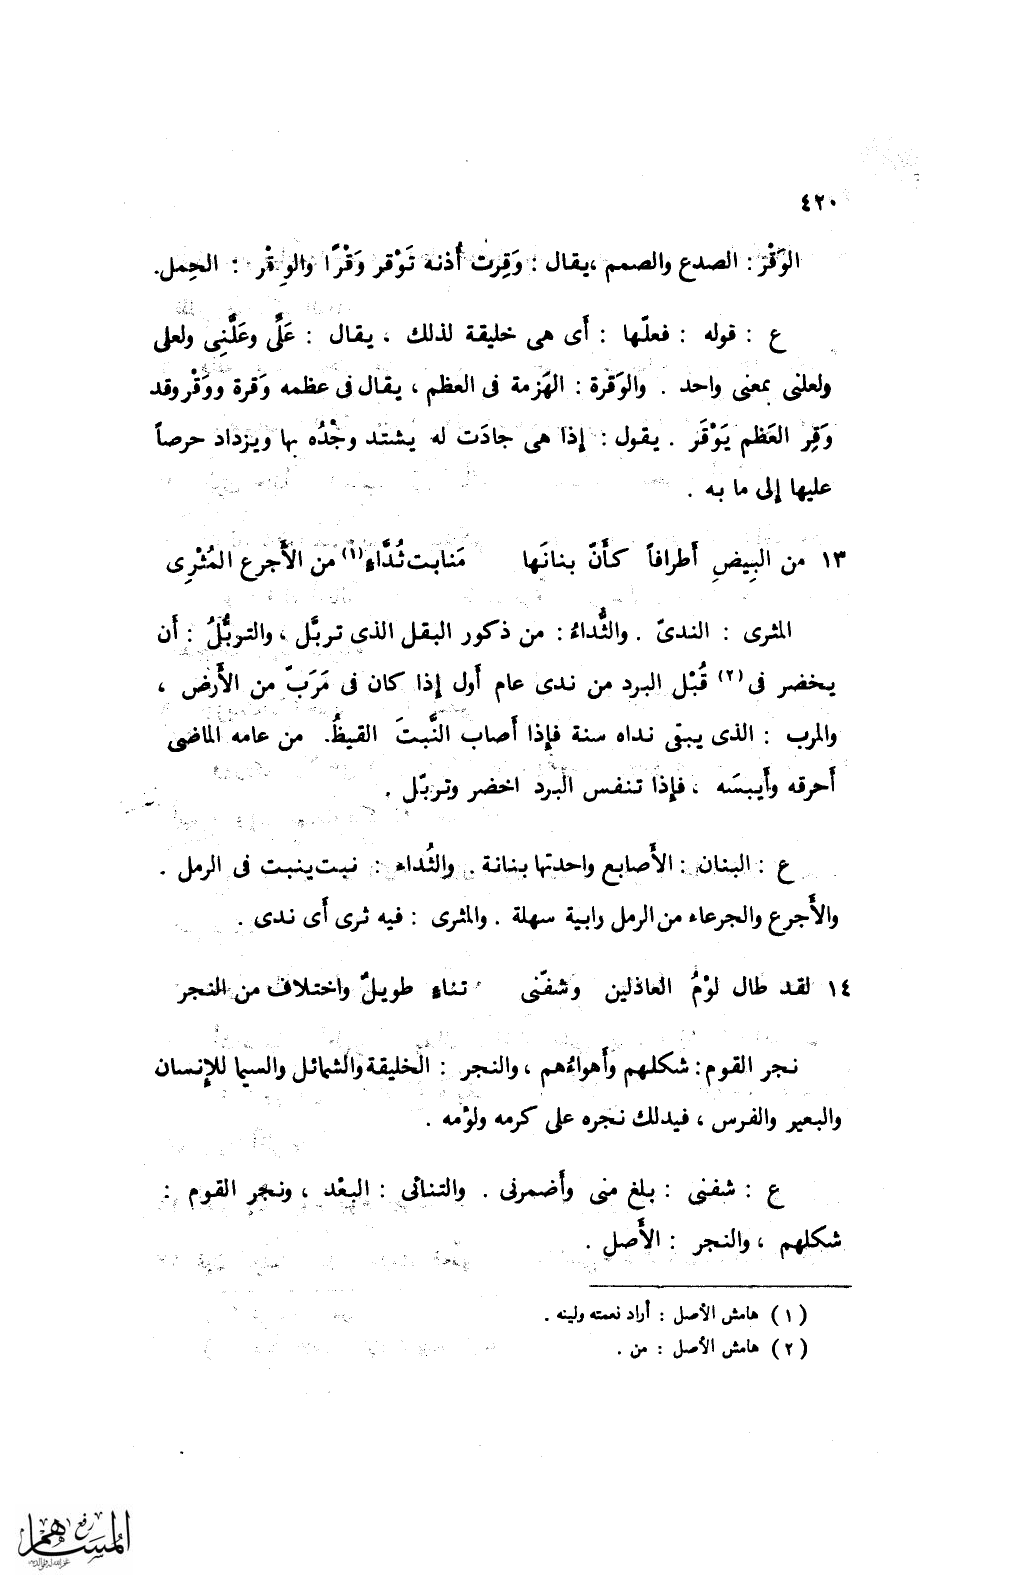 ٤٢٠
الوَقْرُ : الصدع والصمم ، يقال : وَقِرت أُذنه تَوْقر وَقْرًا والوِقْر : الحِمل .
ع : قوله : فعلّها : أَى هى خليقة لذلك ، يقال : عَلَّى وعَلَّنِى ولعلى
ولعلنى بمعنى واحد . والوَقرة : الهَزمة فى العظم ، يقال فى عظمه وَقرة ووَقْر وقد
وَقِر العَظم يَوْقَر . يقول : إذا هى جادَت له يشتد وجْدُه بها ويزداد حرصاً
عليها إلى ما به .
١٣ من البِيضِ أَطرافاً كأَنّ بنانَها مَنابت ثُدَّاءٍ (١) من الأَجرع المُثْرِى
المثرى : الندىّ . والثُّداءُ : من ذكور البقل الذى تربَّل ، والتربُّلُ : أَن
يخضر فى (٢) قُبْل البرد من ندى عام أَول إذا كان فى مَرَبّ من الأَرض ،
والمرب : الذى يبقى نداه سنة فإذا أَصاب النَّبتَ القيظُ من عامه الماضى
أَحرقه وأَيبسَه ، فإذا تنفس البرد اخضر وتربّل .
ع : البنان : الأَصابع واحدتها بنانة . والثُداء : نبت ينبت فى الرمل .
والأَجرع والجرعاء من الرمل رابية سهلة . والمثرى : فيه ثرى أَى ندى .
١٤ لقد طال لوْمُ العاذلين وشفّنى تناءٍ طويلٌ واختلاف من النجر
نجر القوم : شكلهم وأَهواءُهم ، والنجر : الخليقة والشمائل والسيما للإنسان
والبعير والفرس ، فيدلك نجره على كرمه ولؤمه .
ع : شفنى : بلغ منى وأَضمرنى . والتنائى : البعْد ، ونجر القوم :
شكلهم ، والنجر : الأَصل .
( ١ ) هامش الأصل : أراد نعمته ولينه .
( ٢ ) هامش الأصل : من .
رفع
المساهم